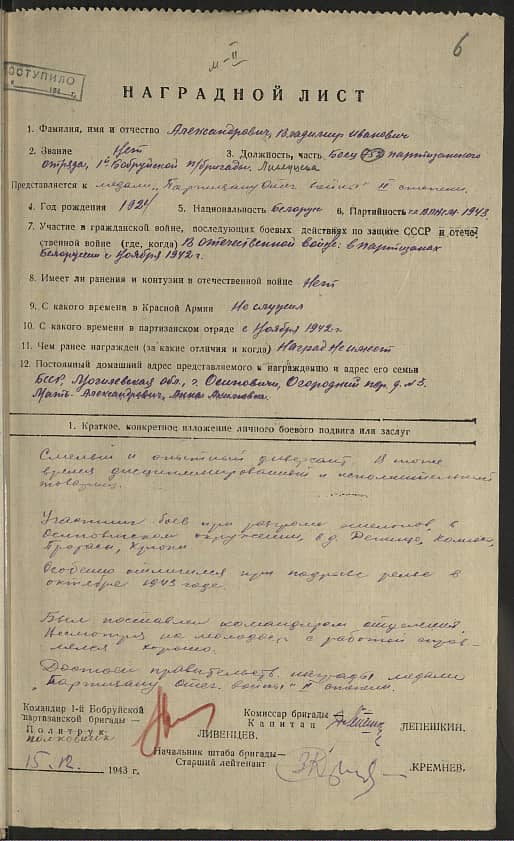 6
м-II
ПОСТУПИЛО
НАГРАДНОЙ ЛИСТ
1. Фамилия, имя и отчество Александрович, Владимир Иванович
2. Звание Нет 3. Должность, часть Боец 753 партизанского
отряда, 1й Бобруйской п/бригады. Ливенцева
Представляется к медали „Партизану Отеч. войны" II степени.
4. Год рождения 1924 5. Национальность Белорус 6. Партийность ВЛКСМ 1943
7. Участие в гражданской войне, последующих боевых действиях по защите СССР и отече-
ственной войне (где, когда) В отечественной войне: в партизанах
Белоруссии с Ноября 1942 г.
8. Имеет ли ранения и контузии в отечественной войне Нет
9. С какого времени в Красной Армии Не служил
10. С какого времени в партизанском отряде с Ноября 1942 г.
11. Чем ранее награжден (за какие отличия и когда) Наград не имеет
12. Постоянный домашний адрес представляемого к награждению и адрес его семьи
БССР, Могилевская обл., г. Осиповичи, Огородний пер. д. №3.
Мать- Александрович, Анна
1. Краткое, конкретное изложение личного боевого подвига или заслуг
Смелый и опытный диверсант. В тоже
время дисциплинированный и исполнительный
товарищ.
Участник боев при разгроме эшелонов, в
Осиповичском окружении, в д.
Особенно отличился при подрыве рельс в
октябре 1943 года.
Был поставлен командиром отделения.
Несмотря на молодость с работой справ-
лялся хорошо.
Достоин правительств. награды медали
„Партизану Отеч. войны" II степени.
Командир 1-й Бобруйской
партизанской бригады—
Политрук
полковник
ЛИВЕНЦЕВ.
Комиссар бригады—
Капитан
ЛЕПЕШКИН.
Начальник штаба бригады—
Старший лейтенант
КРЕМНЕВ.
15.12. 1943 г.